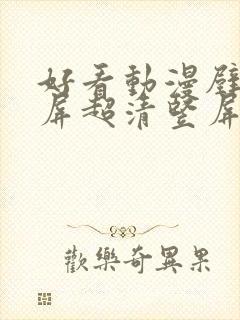 好看動漫壁
屏超清竖屏
歡樂奇異果